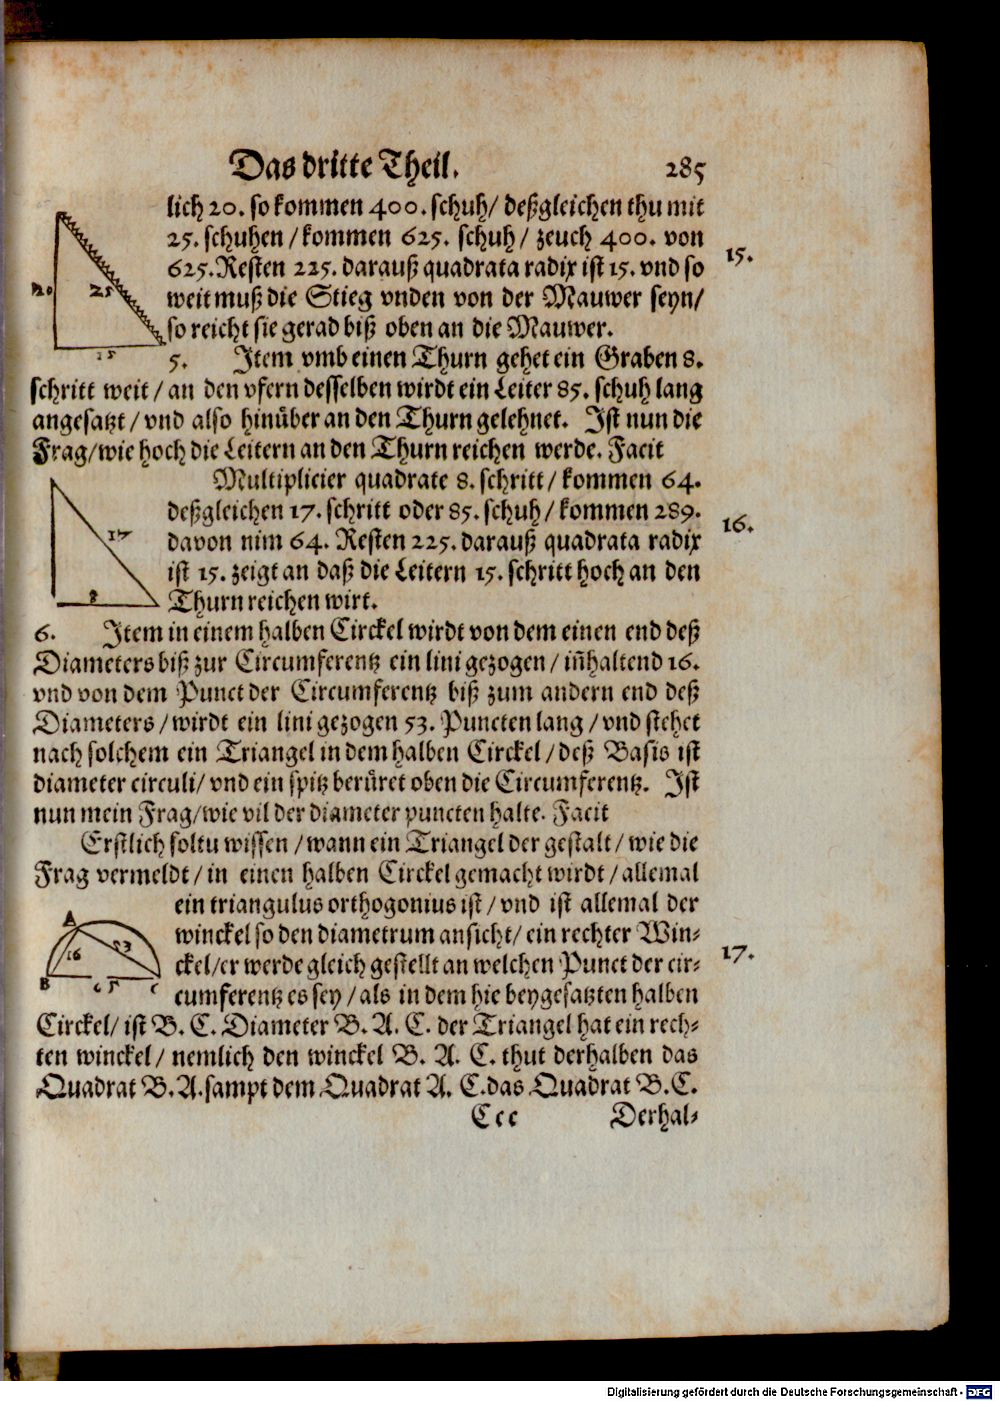 Das dritte Theil. 285
lich 20. so kommen 400. schuh/ deßgleichen thu mit
25. schuhen / kommen 625. schuh / zeuch 400. von
15.
625. Resten 225. darauß quadrata radix ist 15. vnd so
weit muß die Stieg vnden von der Mauwer seyn/
so reicht sie gerad biß oben an die Mauwer.
20
25
15
5. Item vmb einen Thurn gehet ein Graben 8.
schritt weit / an den vfern desselben wirdt ein Leiter 85. schuh lang
angesatzt / vnd also hinüber an den Thurn gelehnet. Ist nun die
Frag/wie hoch die Leitern an den Thurn reichen werde. Facit
Multiplicier quadrate 8. schritt / kommen 64.
deßgleichen 17. schritt oder 85. schuh / kommen 289.
16.
davon nim 64. Resten 225. darauß quadrata radix
ist 15. zeigt an daß die Leitern 15. schritt hoch an den
Thurn reichen wirt.
17
8
6. Item in einem halben Circkel wirdt von dem einen end deß
Diameters biß zur Circumferentz ein lini gezogen / iñhaltend 16.
vnd von dem Punct der Circumferentz biß zum andern end deß
Diameters / wirdt ein lini gezogen 53. Puncten lang / vnd stehet
nach solchem ein Triangel in dem halben Circkel / deß Basis ist
diameter circuli/ vnd ein spitz berüret oben die Circumferentz. Ist
nun mein Frag/wie vil der diameter puncten halte. Facit
Erstlich soltu wissen / wann ein Triangel der gestalt / wie die
Frag vermeldt / in einen halben Circkel gemacht wirdt / allemal
ein triangulus orthogonius ist / vnd ist allemal der
winckel so den diametrum ansicht/ ein rechter Win⸗
17.
ckel/er werde gleich gestellt an welchen Punct der cir⸗
cumferentz es sey / als in dem hie beygesatzten halben
A
16
53
B
65
C
Circkel/ ist B. C. Diameter B. A. C. der Triangel hat ein rech⸗
ten winckel / nemlich den winckel B. A. C. thut derhalben das
Quadrat B. A. sampt dem Quadrat A. C. das Quadrat B. C.
Ccc Derhal⸗
Digitalisierung gefördert durch die Deutsche Forschungsgemeinschaft - DFG